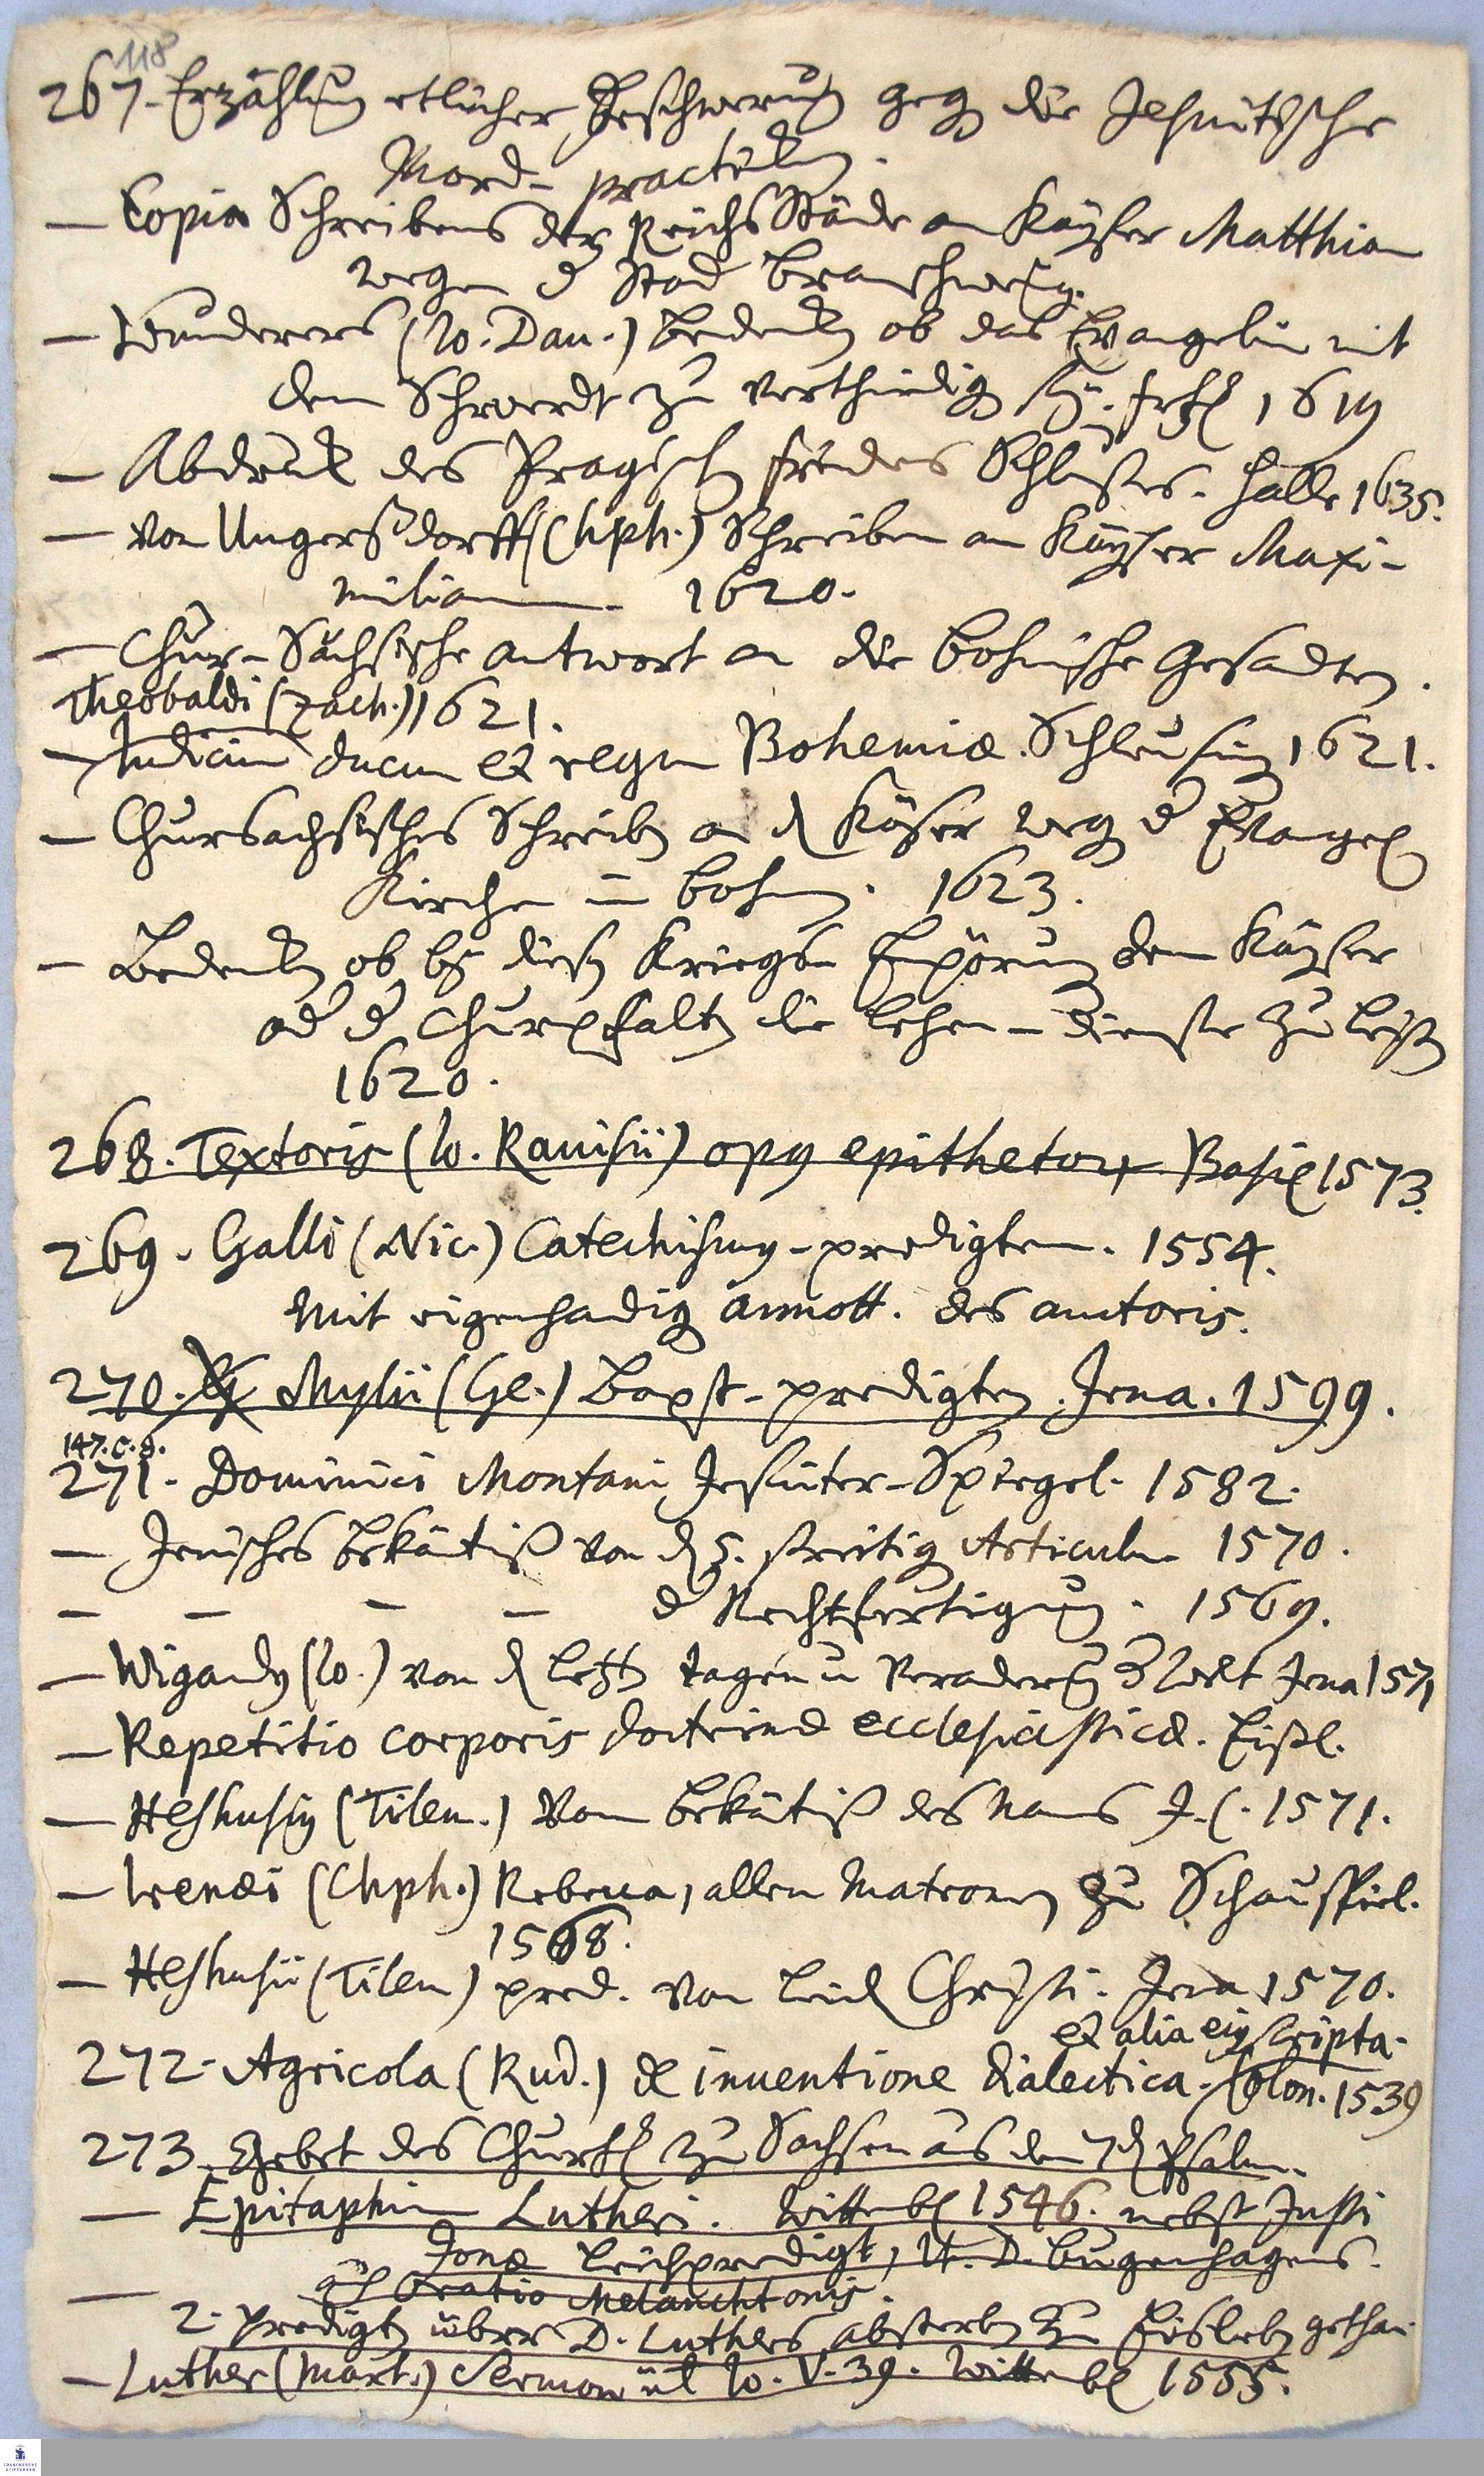 118
267. Erzählung etlicher Beschwerung geg die Jesuitische
Mord-practiken.
— Copia Schreibens der Reichs Stände an Kayser Matthiam
wegen d Stad Braunschweig.
— Wunderers (Io. Dan.) Bedenken ob das Evangelium mit
dem Schwerdt zu verthedig sey. 1619
— Abdruck des Pragisch friedens Schlusses. Halle 1635.
— von Ungerßdorff (Chph.) Schreiben an Kayser Maxi-
milian 1620.
— Chur-Sächsische antwort an die bohmische Gesandten.
Theobaldi (Zach.) 1621.
— Iudicium ducum et regum Bohemiæ. Schleusing 1621.
— Chursachsisches Schreiben an d Käyser weg d Evangel
Kirche in Bohmen. 1623.
— Bedenken ob bey diesen Kriegs Empörung dem Kayser
od d Churpfaltz die Lehen-dienste zu leisten
1620.
268. Textoris (Io. Rauisii) opus epithetorum Basil 1573.
269. Galli (Nic.) Catechismus-predigten. 1554.
Mit eigenhändig annott. des autoris.
270. Mylii (Ge.) Bapst-predigten. Jena. 1599.
147. C. 9.
271. Dominici Montani Jesuiter-Spiegel. 1582.
— Jenisches Bekäntniß von d 5. streitig Articuln 1570.
— — — — d Rechtfertigung. 1569.
— Wigandus (Io.) von d letzten tagen u Veranderung d Welt Jena 1571
— Repetitio corporis doctrinæ ecclesiasticæ. Eißl.
— Heshusius (Tilem.) Vom Bekäntniß des Namens J. C. 1571.
— Irenæi (Chph.) Rebecca, allen Matronen zu Schauspiel.
1568.
— Heshusii (Tilem) pred. von Leid Christi. Jena 1570.
et alia eius scripta.
272. Agricola (Rud.) de inuentione dialectica. Colon. 1539
273. Gebet des Churf zu Sachsen aus dem 7d Psalm.
— Epitaphium Lutheri. Wittenb 1546. nebst Justi
Jonæ Leichpredigt, It. D. Bugenhagens.
— Oratio Melanchtonis.
2. Predigten über D. Luthers absterben zu Eisleben gethan
— Luther (Mart.) Sermon üb Io. V. 39. Wittenb 1555.
FRANCKESCHE
STIFTUNGEN